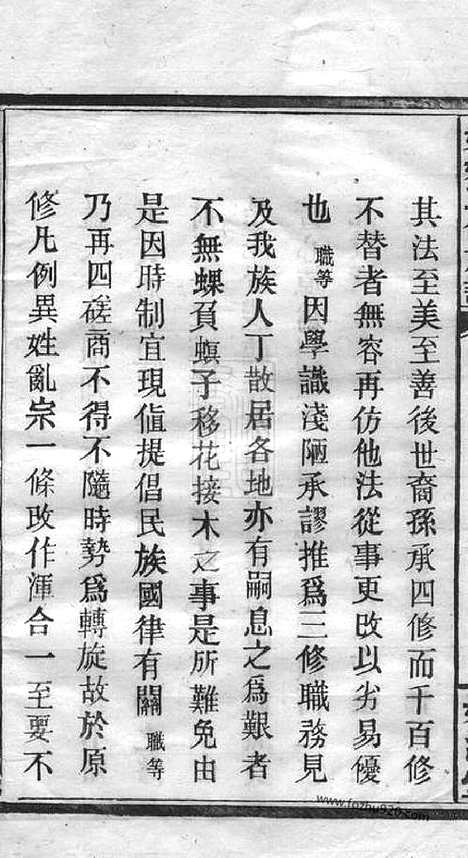 其法至美至善後世裔孫承四修而千百修
不替者無容再仿他法從事更改以劣易優
也職等因學識淺陋承謬推爲三修職務見
及我族人丁散居各地亦有嗣息之爲艱者
不無螺負螟子移花接木之事是所難免由
是因時制宜現值提倡民族國律有關職等
乃再四磋商不得不隨時勢爲轉旋故於原
修凡例異姓亂宗一條改作渾合一至要不
www.fozhu920.com